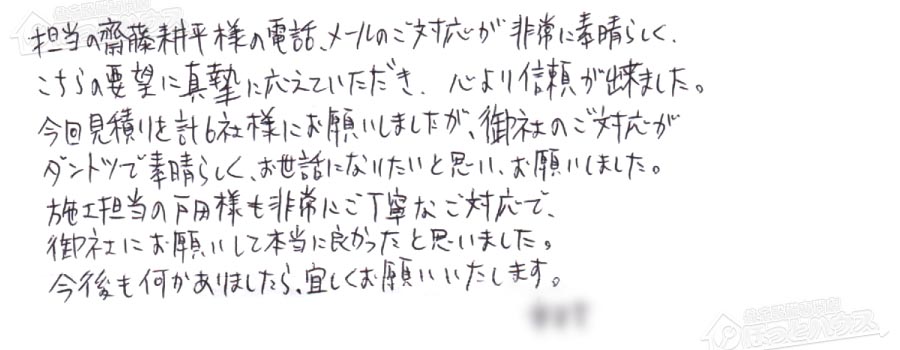 担当の齋藤耕平様の電話、メールのご対応が非常に素晴らしく、
こちらの要望に真摯に応えていただき、心より信頼が出来ました。
今回見積りを計6社様にお願いしましたが、御社のご対応が
ダントツで素晴らしく、お世話になりたいと思い、お願いしました。
施工担当の戸田様も非常にご丁寧なご対応で、
御社にお願いして本当に良かったと思いました。
今後も何かありましたら、宜しくお願いいたします。
ほっとハウス